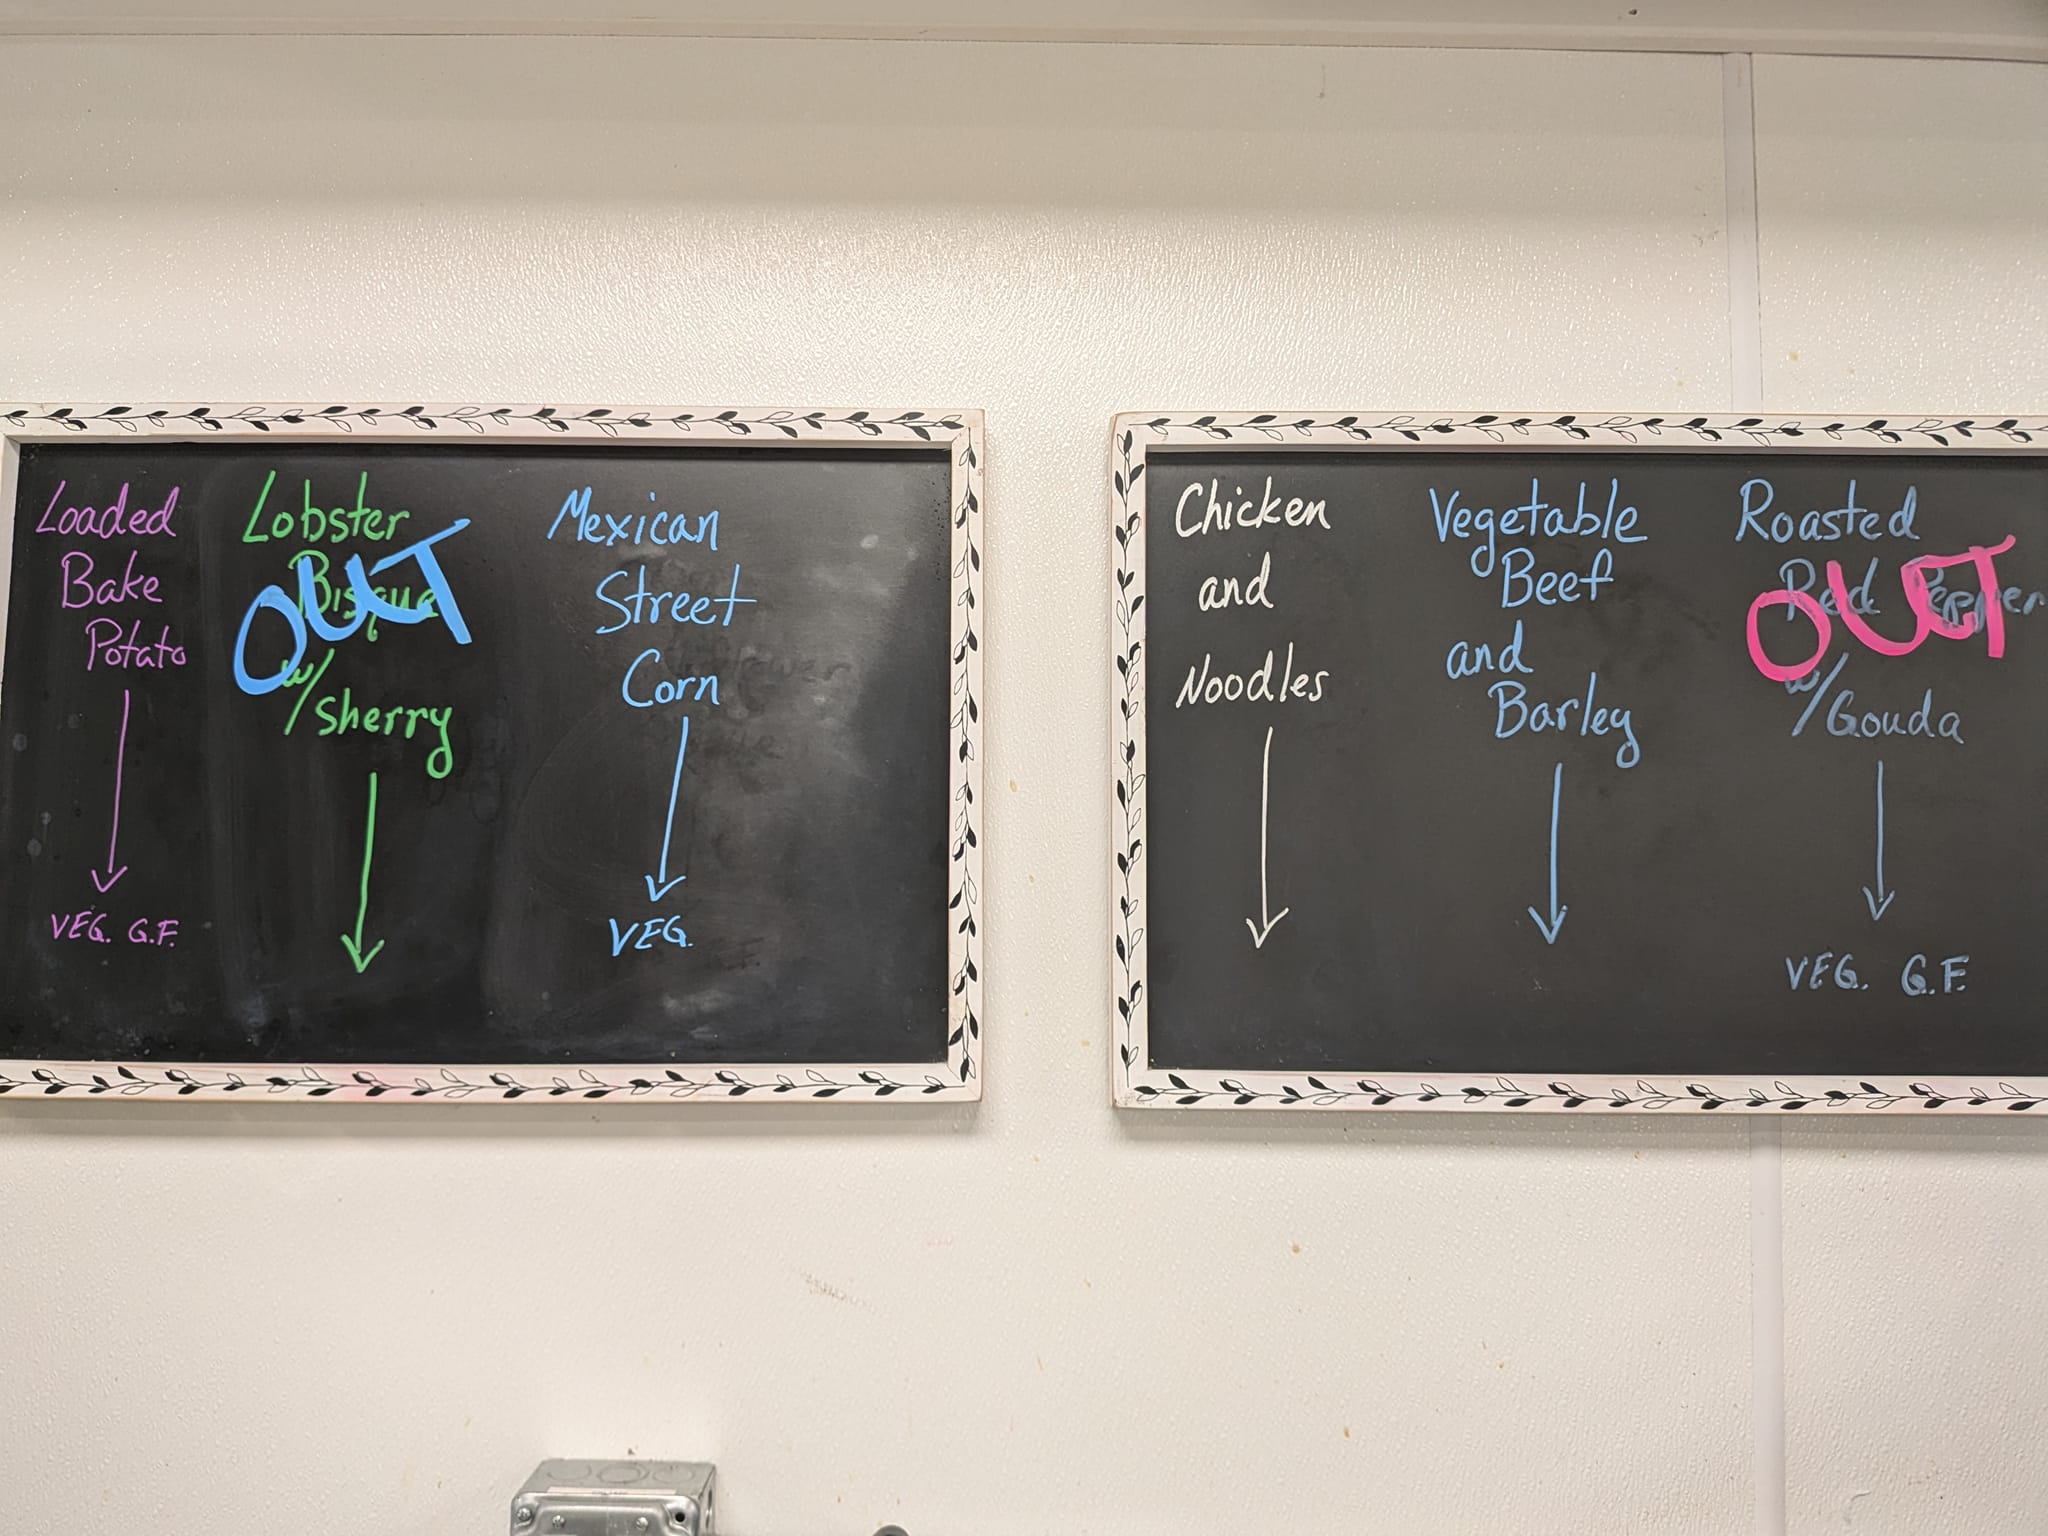 Loaded
Bake
Potato
VEG. G.F.
Lobster
Bisque
OUT
w/sherry
Mexican
Street
Corn
VEG.
Chicken
and
Noodles
Vegetable
Beef
and
Barley
Roasted
Red Pepper
OUT
w/Gouda
VEG. G.F.